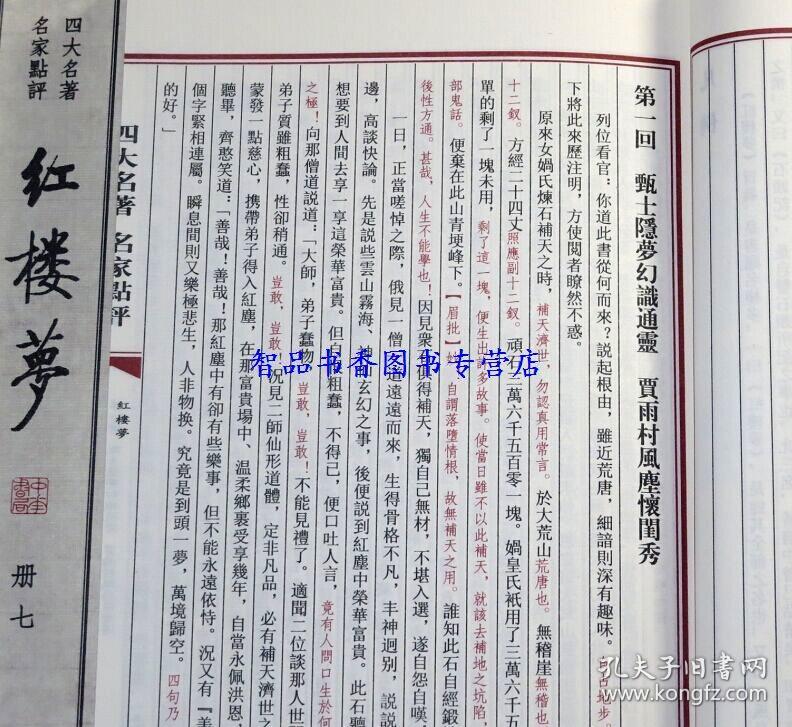 四大名著
名家點評
紅樓夢
中华書局
册七
四大名著 名家點評
紅樓夢
第一回 甄士隱夢幻識通靈 賈雨村風塵懷閨秀
列位看官：你道此書從何而來？說起根由，雖近荒唐，細諳則深有趣味。自占地步
下將此來歷注明，方使閱者瞭然不惑。
原來女媧氏煉石補天之時，補天濟世，勿認真用常言。於大荒山荒唐也。無稽崖無稽也
十二釵。方經二十四丈照應副十二釵。頑石三萬六千五百零一塊。媧皇氏衹用了三萬六千五
單的剩了一塊未用，剩了這一塊，便生出許多故事。使當日雖不以此補天，就該去補地之坑陷，
部鬼話。便棄在此山青埂峰下。【眉批】妙！自謂落墮情根，故無補天之用。誰知此石自經鍛
後性方通。甚哉，人生不能學也！因見衆 俱得補天，獨自己無材，不堪入選，遂自怨自嘆，
一日，正當嗟悼之際，俄見一僧 道遠遠而來，生得骨格不凡，丰神迥别，說説
邊，高談快論。先是説些雲山霧海、神 玄幻之事，後便説到紅塵中榮華富貴。此石聽
想要到人間去享一享這榮華富貴。但自 粗蠢，不得已，便口吐人言，竟有人問口生於何
之極！向那僧道説道：「大師，弟子蠢物，豈敢，豈敢！不能見禮了。適聞二位談那人世間
弟子質雖粗蠢，性卻稍通。豈敢，豈敢！况見二師仙形道體，定非凡品，必有補天濟世之
蒙發一點慈心，携帶弟子得入紅塵，在那富貴場中、温柔鄉裏受享幾年，自當永佩洪恩，
聽畢，齊憨笑道：「善哉！善哉！那紅塵中有卻有些樂事，但不能永遠依恃。况又有『美
個字緊相連屬。瞬息間則又樂極悲生，人非物换。究竟是到頭一夢，萬境歸空。四句乃
的好。」
智品书香图书专营店
孔夫子旧书网
www.kongfz.com